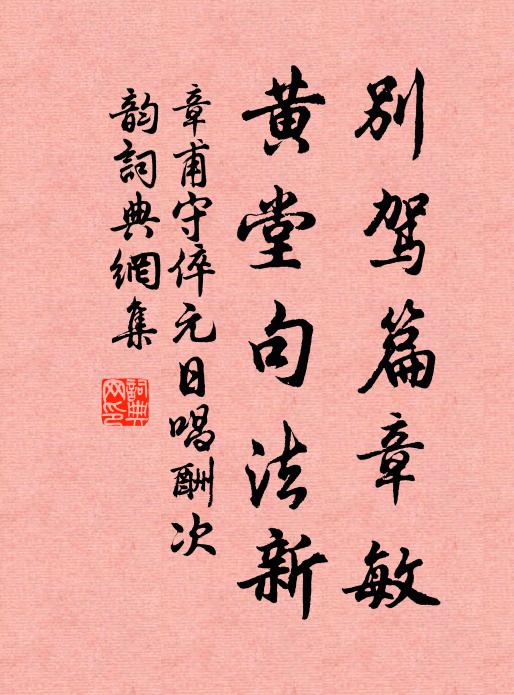 別駕篇章敏
黄堂句法新
章甫守倅元日唱酬次
韵詞典網集
詞典
网印